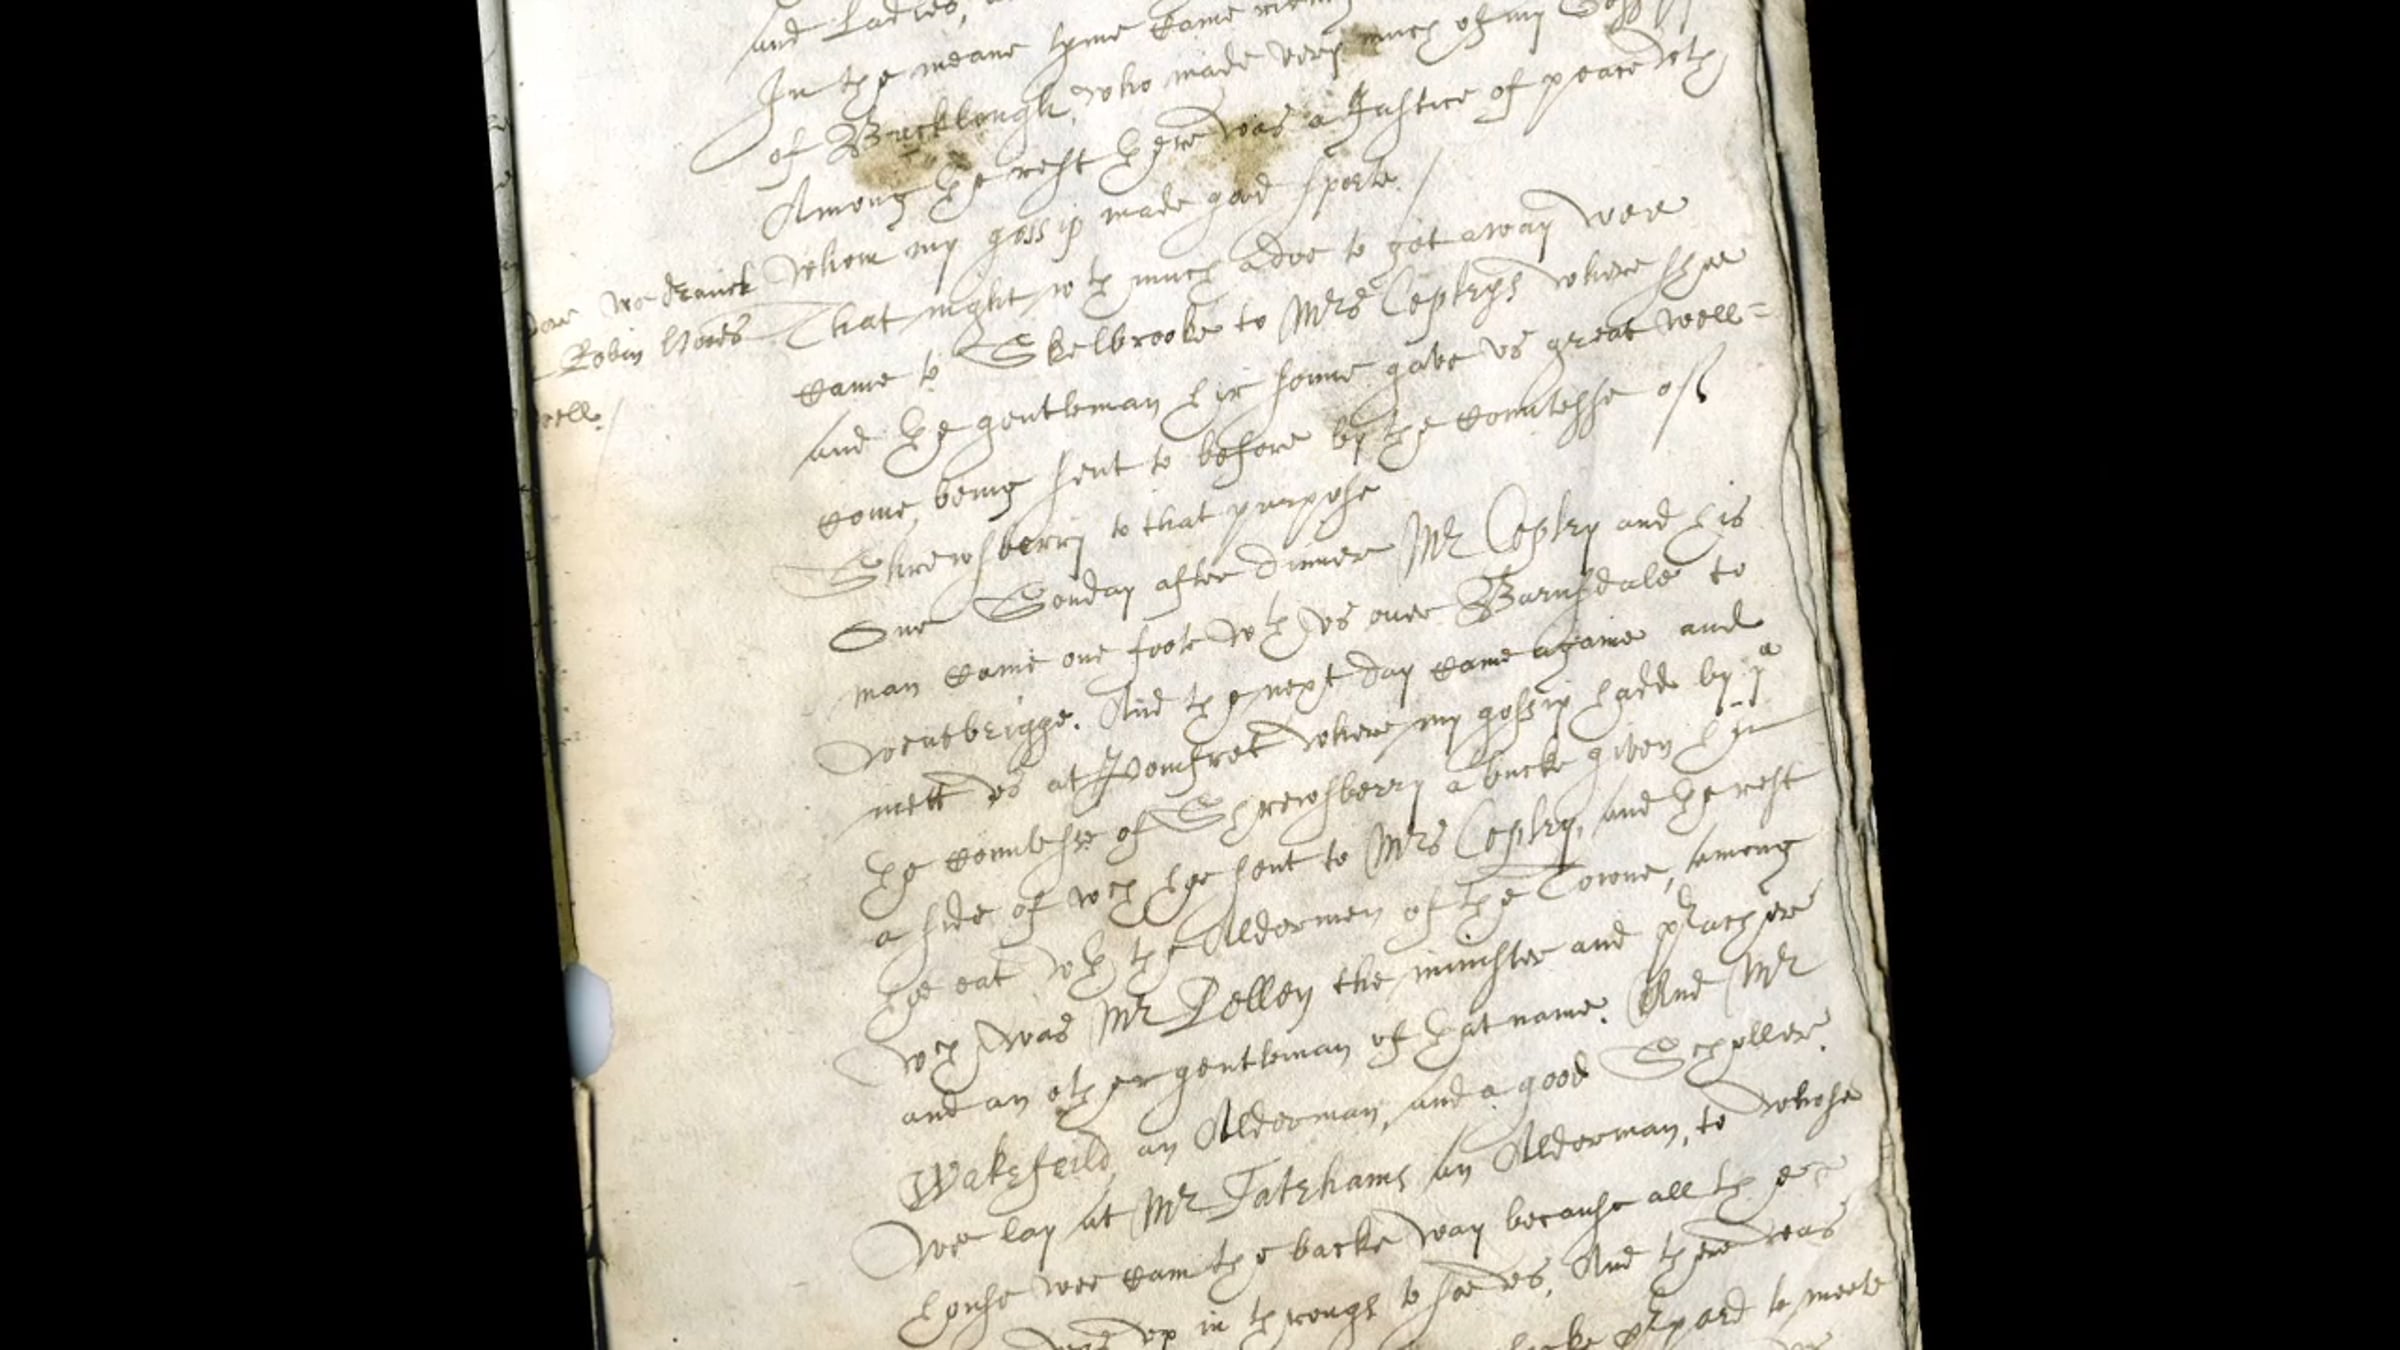 and Ladies,
In the meane tyme came
of Buckleugh, who made very much of my Goss
Among the rest there was a Justice of peace wth
whom my gossip made good sporte. /
we dranck
That night wth much adoe to get away wee
Robin Hoods
came to Skelbrooke to Mrs Copleys where shee
well. /
and the gentleman hir sonne gave us great well=
come, being sent to before by the Countesse off
Shrewsberry to that purpose
One Sonday after dinner Mr Copley and his
man came one foote wth us over Barnsdale to
wentbrigge. And the next day came againe and
mett us at Pomfret where my gossip hadd by
the Countesse of Shrewsberry a bucke given him
a side of wch hee sent to Mrs Copley, and the rest
hee eat wth the Aldermen of the Towne, among
wch was Mr Polley the minister and preacher
and an other gentleman of that name. And Mr
Wakefeild an Alderman, and a good Scholler.
We lay at Mr Tatehams an Alderman, to whose
house wee cam the backe way because all the
up in throngs to see us. And there was
backe yard to meete